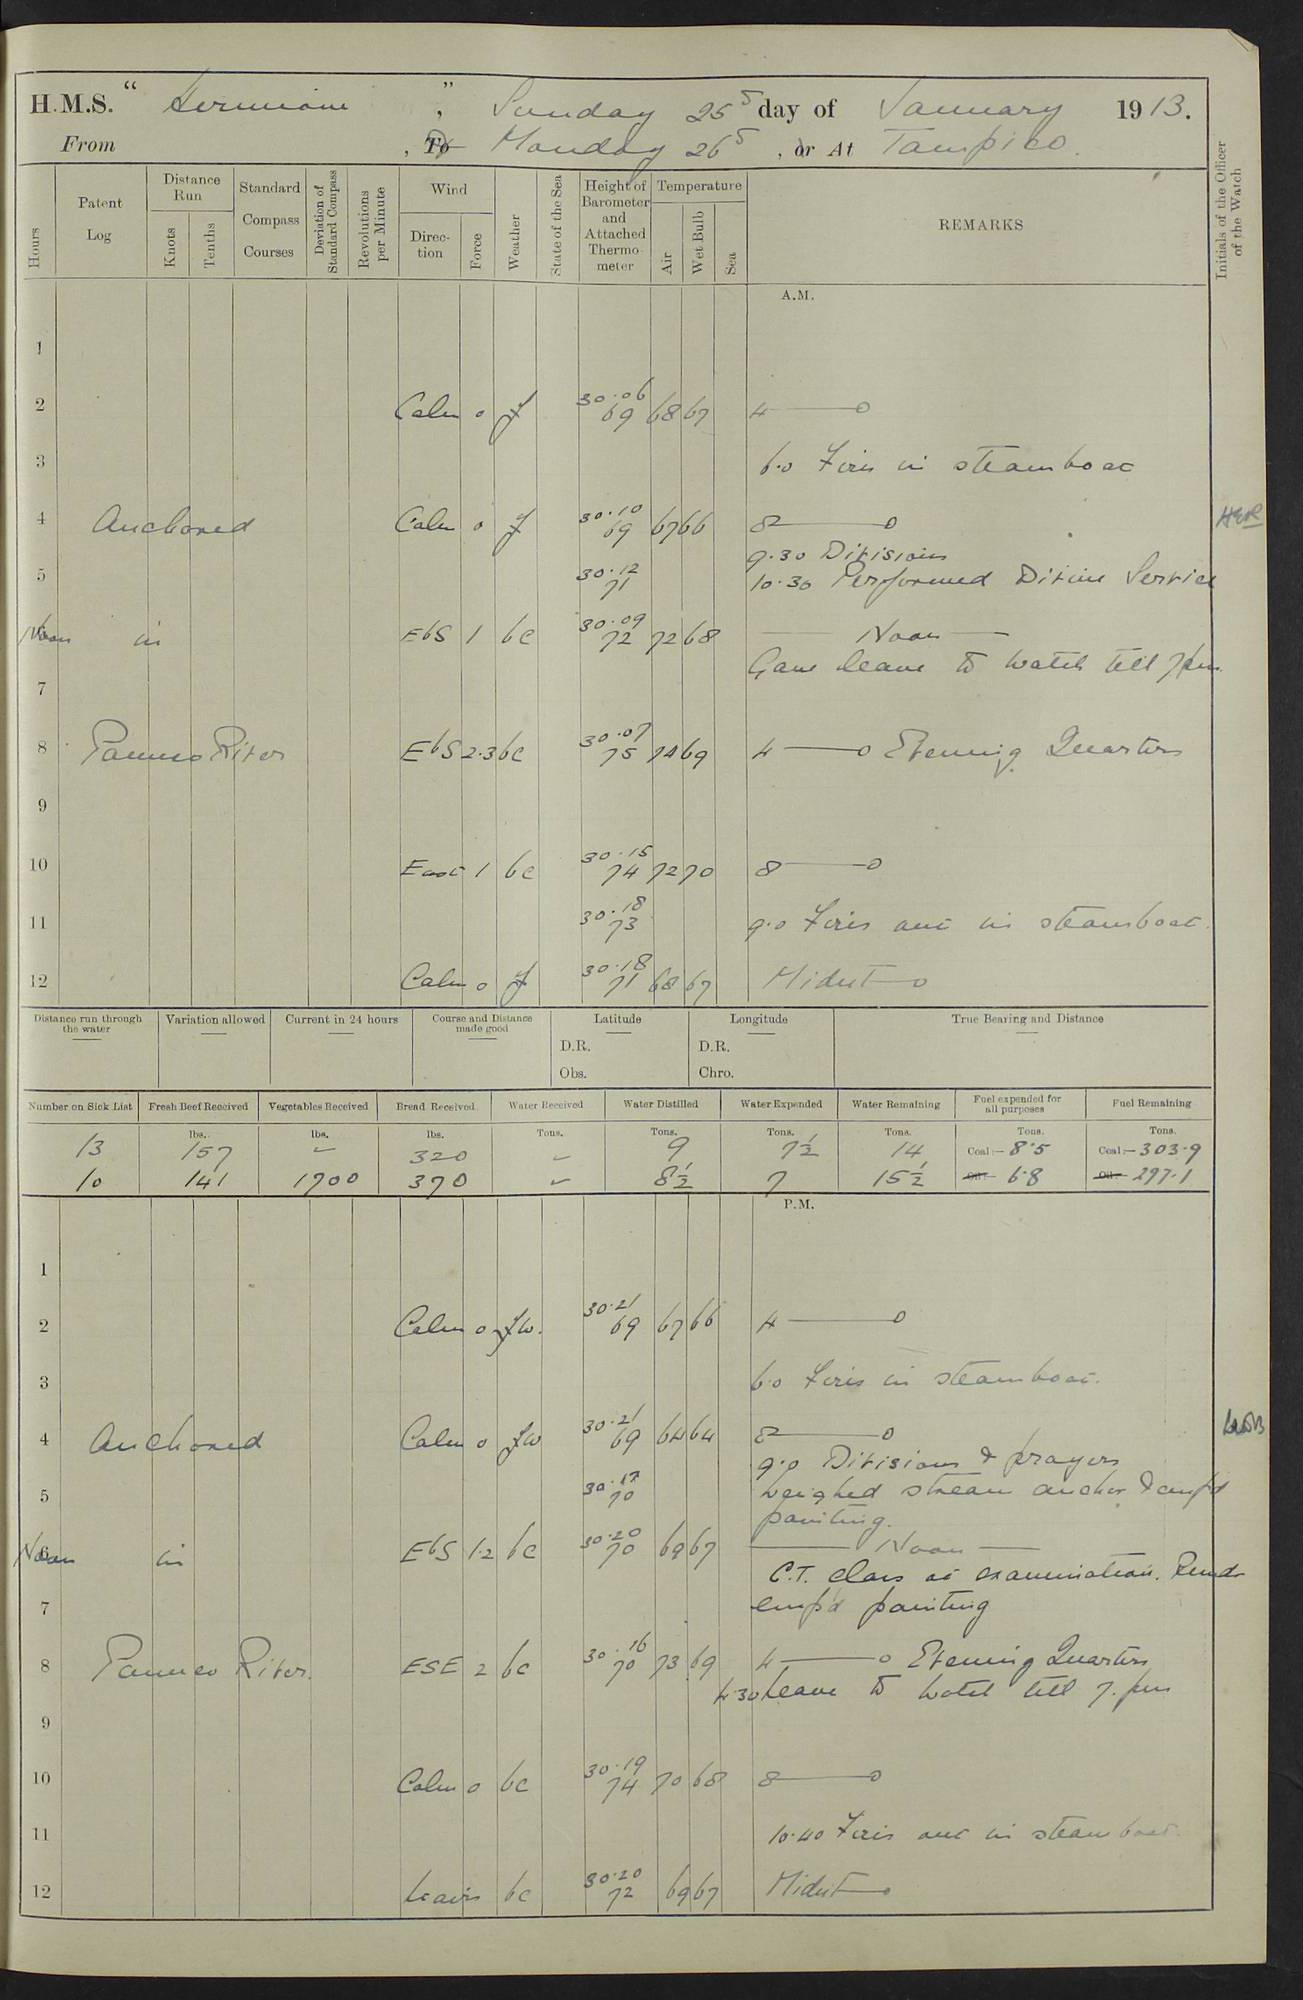 H.M.S. "Hermione", Sunday 25th day of January 1913.
From , To Monday 26th , or At Tampico.
Hours
Patent Log
Distance Run
Knots
Tenths
Standard Compass Courses
Deviation of Standard Compass
Revolutions per Minute
Wind
Direction
Force
Weather
State of the Sea
Height of Barometer and Attached Thermometer
Temperature
Air
Wet Bulb
Sea
REMARKS
Initials of the Officer of the Watch
A.M.
1
2 Calm 0 f 30.06 69 68 67 4
3 6.0 Fires in steamboat
4 Anchored Calm 0 f 30.10 69 67 66 8
9.30 Divisions
5 30.12 71 10.30 Performed Divine Service
Noon in EbS 1 bc 30.09 72 72 68 Noon
Gave leave to watch till 7 pm.
7
8 Panuco River EbS 2.3 bc 30.07 75 74 69 4 Evening Quarters
9
10 East 1 bc 30.15 74 72 70 8
11 30.18 73 9.0 Fires out in steamboat.
12 Calm 0 f 30.18 71 68 67 Midnt
Distance run through the water
Variation allowed
Current in 24 hours
Course and Distance made good
Latitude
D.R.
Obs.
Longitude
D.R.
Chro.
True Bearing and Distance
Number on Sick List
Fresh Beef Received
Vegetables Received
Bread Received
Water Received
Water Distilled
Water Expended
Water Remaining
Fuel expended for all purposes
Fuel Remaining
lbs. lbs. lbs. Tons. Tons. Tons. Tons. Tons. Tons.
13 157 - 320 - 9 7½ 14 Coal:- 8.5 Coal:- 303.9
10 141 1700 370 - 8½ 7 15½ Oil:- 6.8 Oil:- 297.1
P.M.
1
2 Calm 0 fw. 30.21 69 67 66 4
3 6.0 Fires in steamboat.
4 Anchored Calm 0 fw 30.21 69 64 64 8
9.0 Divisions & prayers
5 30.17 70 weighed stream anchor & emp'd
painting.
Noon 6 in EbS 1.2 bc 30.20 70 69 67 Noon
C.T. Class at examination. Remdr
7 emp'd painting
8 Panuco River. ESE 2 bc 30.16 70 73 69 4 Evening Quarters
4.30 Leave to watch till 7. pm
9
10 Calm 0 bc 30.19 74 70 68 8
11 10.40 Fires out in steamboat.
12 bc 30.20 72 69 67 Midnt